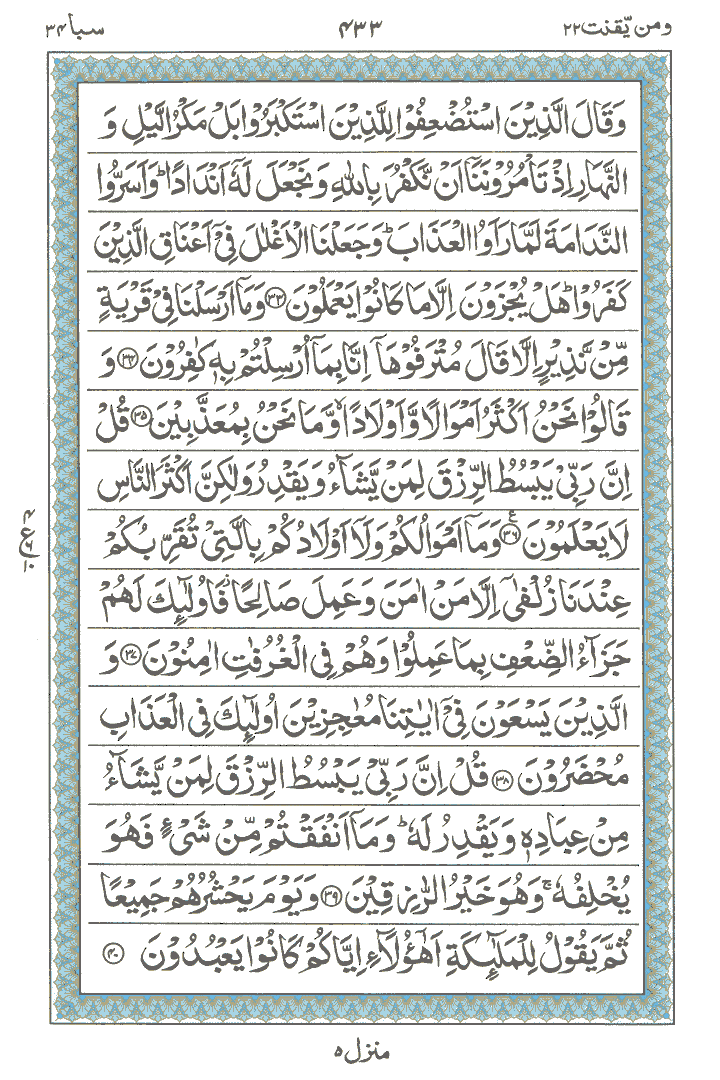 ومن یّقنت ٢٢ ۴٣٣ سبا ٣۴
وَقَالَ الَّذِیْنَ اسْتُضْعِفُوْا لِلَّذِیْنَ اسْتَكْبَرُوْا بَلْ مَكْرُ الَّیْلِ وَ
النَّهَارِ اِذْ تَاْمُرُوْنَنَاۤ اَنْ نَّكْفُرَ بِاللّٰهِ وَنَجْعَلَ لَهٗۤ اَنْدَادًاؕ وَاَسَرُّوا
النَّدَامَةَ لَمَّا رَاَوُا الْعَذَابَؕ وَجَعَلْنَا الْاَغْلٰلَ فِیْۤ اَعْنَاقِ الَّذِیْنَ
كَفَرُوْاؕ هَلْ یُجْزَوْنَ اِلَّا مَا كَانُوْا یَعْمَلُوْنَ ﴿٣٣﴾ وَمَاۤ اَرْسَلْنَا فِیْ قَرْیَةٍ
مِّنْ نَّذِیْرٍ اِلَّا قَالَ مُتْرَفُوْهَاۤ اِنَّا بِمَاۤ اُرْسِلْتُمْ بِهٖ كٰفِرُوْنَ ﴿٣۴﴾ وَ
قَالُوْا نَحْنُ اَكْثَرُ اَمْوَالًا وَّاَوْلَادًاۙ وَّمَا نَحْنُ بِمُعَذَّبِیْنَ ﴿٣۵﴾ قُلْ
اِنَّ رَبِّیْ یَبْسُطُ الرِّزْقَ لِمَنْ یَّشَآءُ وَیَقْدِرُ وَلٰكِنَّ اَكْثَرَ النَّاسِ
لَا یَعْلَمُوْنَ ﴿٣۶﴾ وَمَاۤ اَمْوَالُكُمْ وَلَاۤ اَوْلَادُكُمْ بِالَّتِیْ تُقَرِّبُكُمْ
عِنْدَنَا زُلْفٰۤی اِلَّا مَنْ اٰمَنَ وَعَمِلَ صَالِحًاؗ فَاُولٰٓئِكَ لَهُمْ
جَزَآءُ الضِّعْفِ بِمَا عَمِلُوْا وَهُمْ فِی الْغُرُفٰتِ اٰمِنُوْنَ ﴿٣٧﴾ وَ
الَّذِیْنَ یَسْعَوْنَ فِیْۤ اٰیٰتِنَا مُعٰجِزِیْنَ اُولٰٓئِكَ فِی الْعَذَابِ
مُحْضَرُوْنَ ﴿٣٨﴾ قُلْ اِنَّ رَبِّیْ یَبْسُطُ الرِّزْقَ لِمَنْ یَّشَآءُ
مِنْ عِبَادِهٖ وَیَقْدِرُ لَهٗؕ وَمَاۤ اَنْفَقْتُمْ مِّنْ شَیْءٍ فَهُوَ
یُخْلِفُهٗۚ وَهُوَ خَیْرُ الرّٰزِقِیْنَ ﴿٣٩﴾ وَیَوْمَ یَحْشُرُهُمْ جَمِیْعًا
ثُمَّ یَقُوْلُ لِلْمَلٰٓئِكَةِ اَهٰۤؤُلَآءِ اِیَّاكُمْ كَانُوْا یَعْبُدُوْنَ ﴿۴٠﴾
۴
ع ۶
١٠
منزل ۵